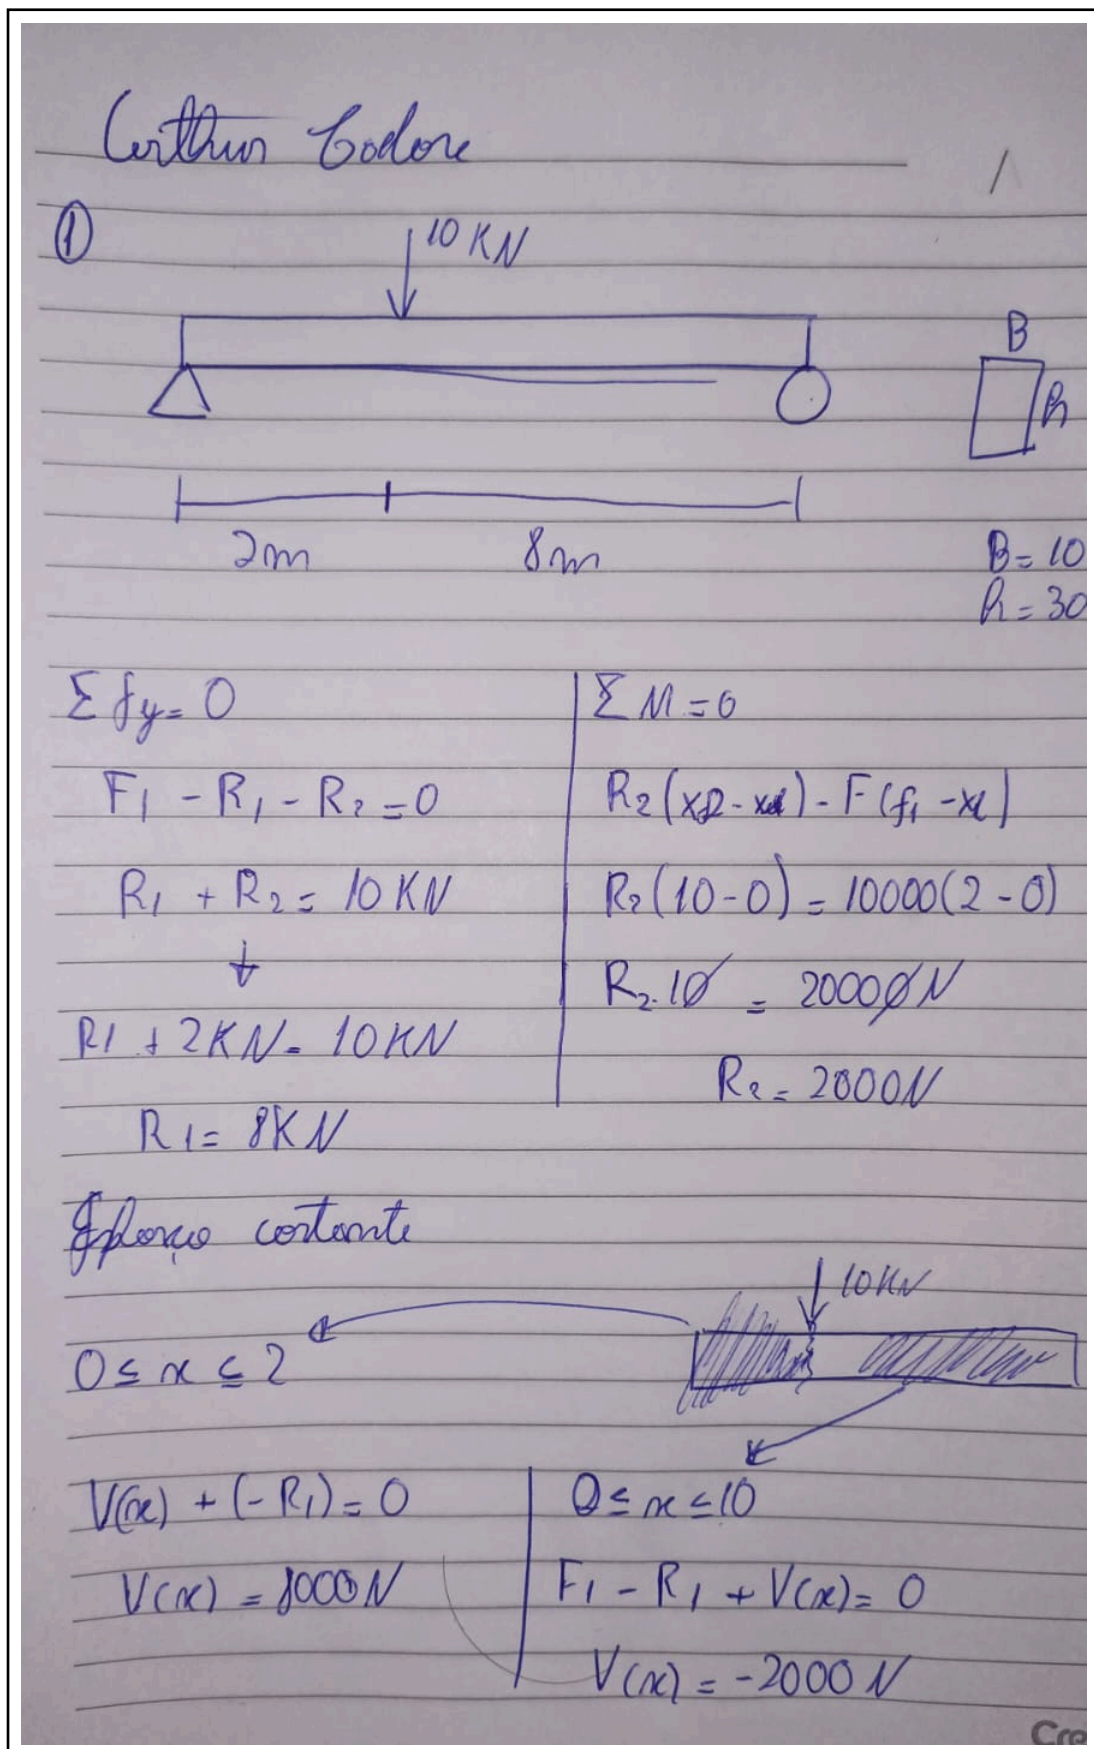 ①
10 KN
B
h
2m 8m
B = 10
h = 30
Σ fy = 0
F1 - R1 - R2 = 0
R1 + R2 = 10 KN
↓
R1 + 2KN = 10KN
R1 = 8KN
Σ M = 0
R2 (x2 - x1) - F (f1 - x1)
R2 (10 - 0) = 10000 (2 - 0)
R2.10 = 20000N
R2 = 2000N
cortante
10 KN
0 ≤ x ≤ 2
V(x) + (- R1) = 0
V(x) = 8000N
0 ≤ x ≤ 10
F1 - R1 + V(x) = 0
V(x) = -2000 N